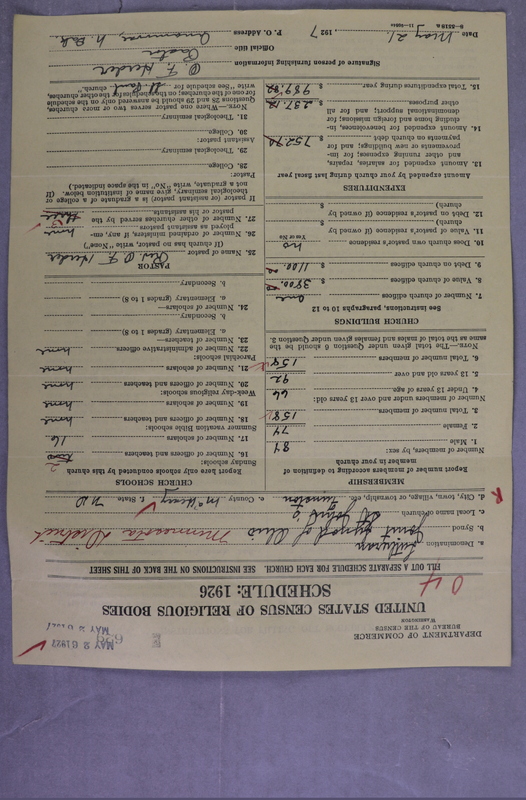 DEPARTMENT OF COMMERCE
BUREAU OF THE CENSUS
WASHINGTON
MAY 26 1927
659
E
UNITED STATES CENSUS OF RELIGIOUS BODIES
SCHEDULE: 1926
04
FILL OUT A SEPARATE SCHEDULE FOR EACH CHURCH. SEE INSTRUCTIONS ON THE BACK OF THIS SHEET
a. Denomination Lutheran
b. Synod Joint Synod of Ohio Minnesota District
c. Local name of church St John's
d. City, town, village, or township, etc. e. County McHenry f. State ND
MEMBERSHIP
Report number of members according to definition of
member in your church
Number of members, by sex:
1. Male 84
2. Female 74
3. Total number of members 158
Number of members under and over 13 years old:
4. Under 13 years of age 66
5. 13 years and over 92
6. Total number of members 158
NOTE.—The total given under Question 6 should be the
same as the total of males and females given under Question 3.
CHURCH BUILDINGS
See instructions, paragraphs 10 to 12
7. Number of church edifices one
8. Value of church edifices $ 3800.00
9. Debt on church edifices $ 1100.00
10. Does church own pastor's residence no
Yes or No
11. Value of pastor's residence (if owned by
church) $
12. Debt on pastor's residence (if owned by
church) $
EXPENDITURES
Amount expended by your church during last fiscal year
13. Amount expended for salaries, repairs,
and other running expenses; for im-
provements or new buildings; and for
payments on church debt $ 752.70
14. Amount expended for benevolences, in-
cluding home and foreign missions; for
denominational support; and for all
other purposes $ 237.12
15. Total expenditures during year $ 989.82
CHURCH SCHOOLS
Report here only schools conducted by this church
Sunday schools:
16. Number of officers and teachers 2
17. Number of scholars 16
Summer vacation Bible schools:
18. Number of officers and teachers none
19. Number of scholars none
Week-day religious schools:
20. Number of officers and teachers none
21. Number of scholars none
Parochial schools:
22. Number of administrative officers none
23. Number of teachers—
a. Elementary (grades 1 to 8)
b. Secondary
24. Number of scholars—
a. Elementary (grades 1 to 8)
b. Secondary
PASTOR
25. Name of pastor Rev. O F. Heider
(If church has no pastor, write "None")
26. Number of ordained ministers, if any, em-
ployed as assistant pastors none
27. Number of other churches served by the
pastor or his assistants
If pastor (or assistant pastor) is a graduate of a college or
theological seminary, give name of institution below. (If
not a graduate, write "No" in the space indicated.)
Pastor:
28. College
29. Theological seminary
Assistant pastor:
30. College
31. Theological seminary
NOTE.—Where one pastor serves two or more churches,
Questions 28 and 29 should be answered only on the schedule
for one of the churches; on the schedules for the other churches,
write "See schedule for St Paul church."
Signature of person furnishing information O F. Heider
Official title Pastor
P. O. Address Anamoose, N. Dak.
Date May 21, 1927